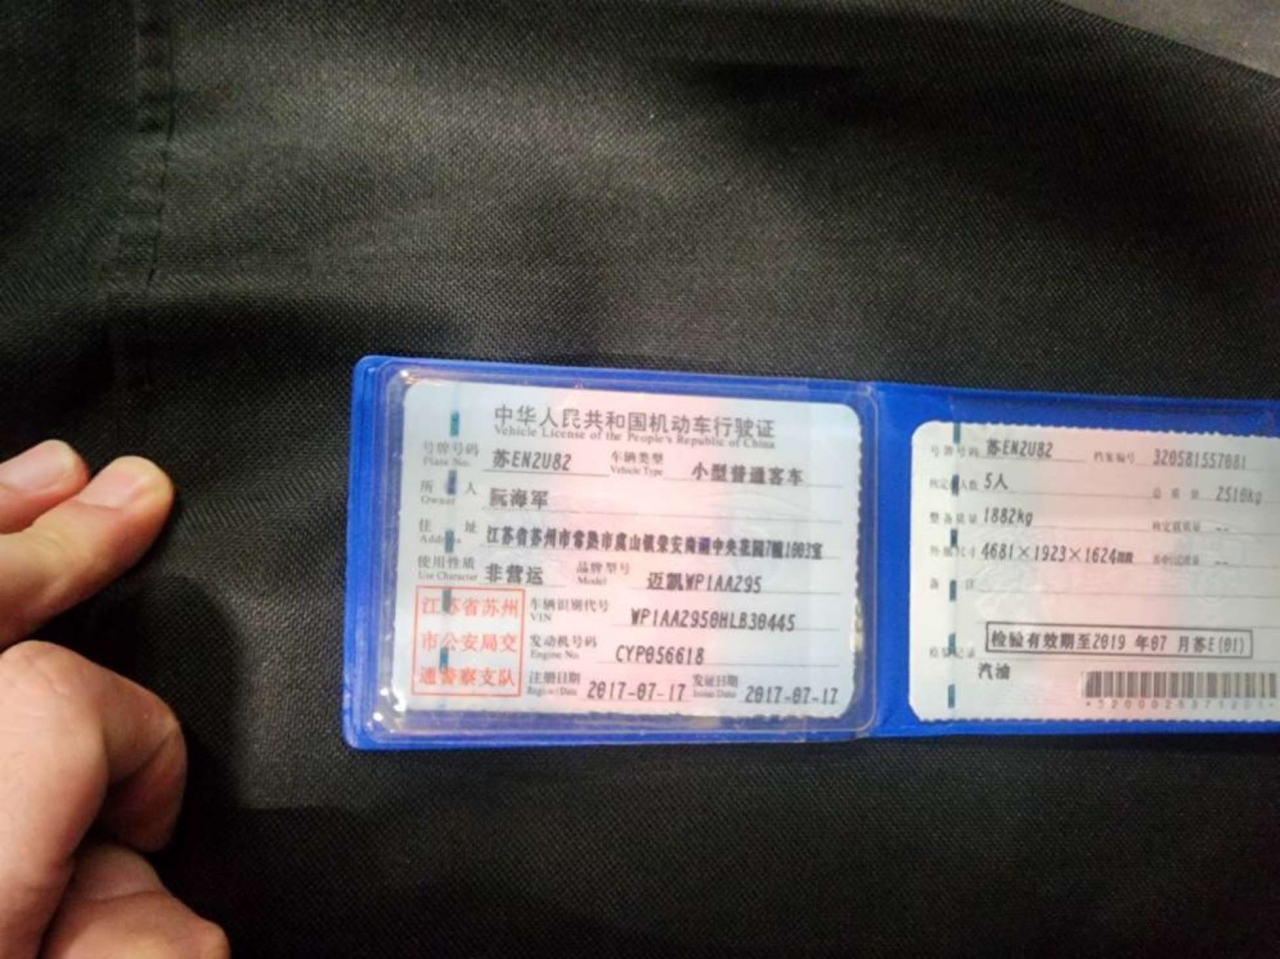 中华人民共和国机动车行驶证
Vehicle License of the People's Republic of China
号牌号码 苏EN2U82 车辆类型 小型普通客车
Plate No. Vehicle Type
所 人 阮海军
Owner
住 址 江苏省苏州市常熟市虞山镇荣安南湖中央花园7幢1003室
Address
使用性质 非营运 品牌型号 迈凯WP1AA295
Use Character Model
江苏省苏州
市公安局交
通警察支队
车辆识别代号 WP1AA2950HLB30445
VIN
发动机号码 CYP056618
Engine No.
注册日期 2017-07-17 发证日期 2017-07-17
Register Date Issue Date
号牌号码 苏EN2U82 档案编号 320581557081
核定 人数 5人 总质量 2510kg
整备质量 1882kg 核定载质量 --
外廓尺寸 4681×1923×1624mm --
备 注
检验记录 检验有效期至2019 年07 月苏E(01)
汽油